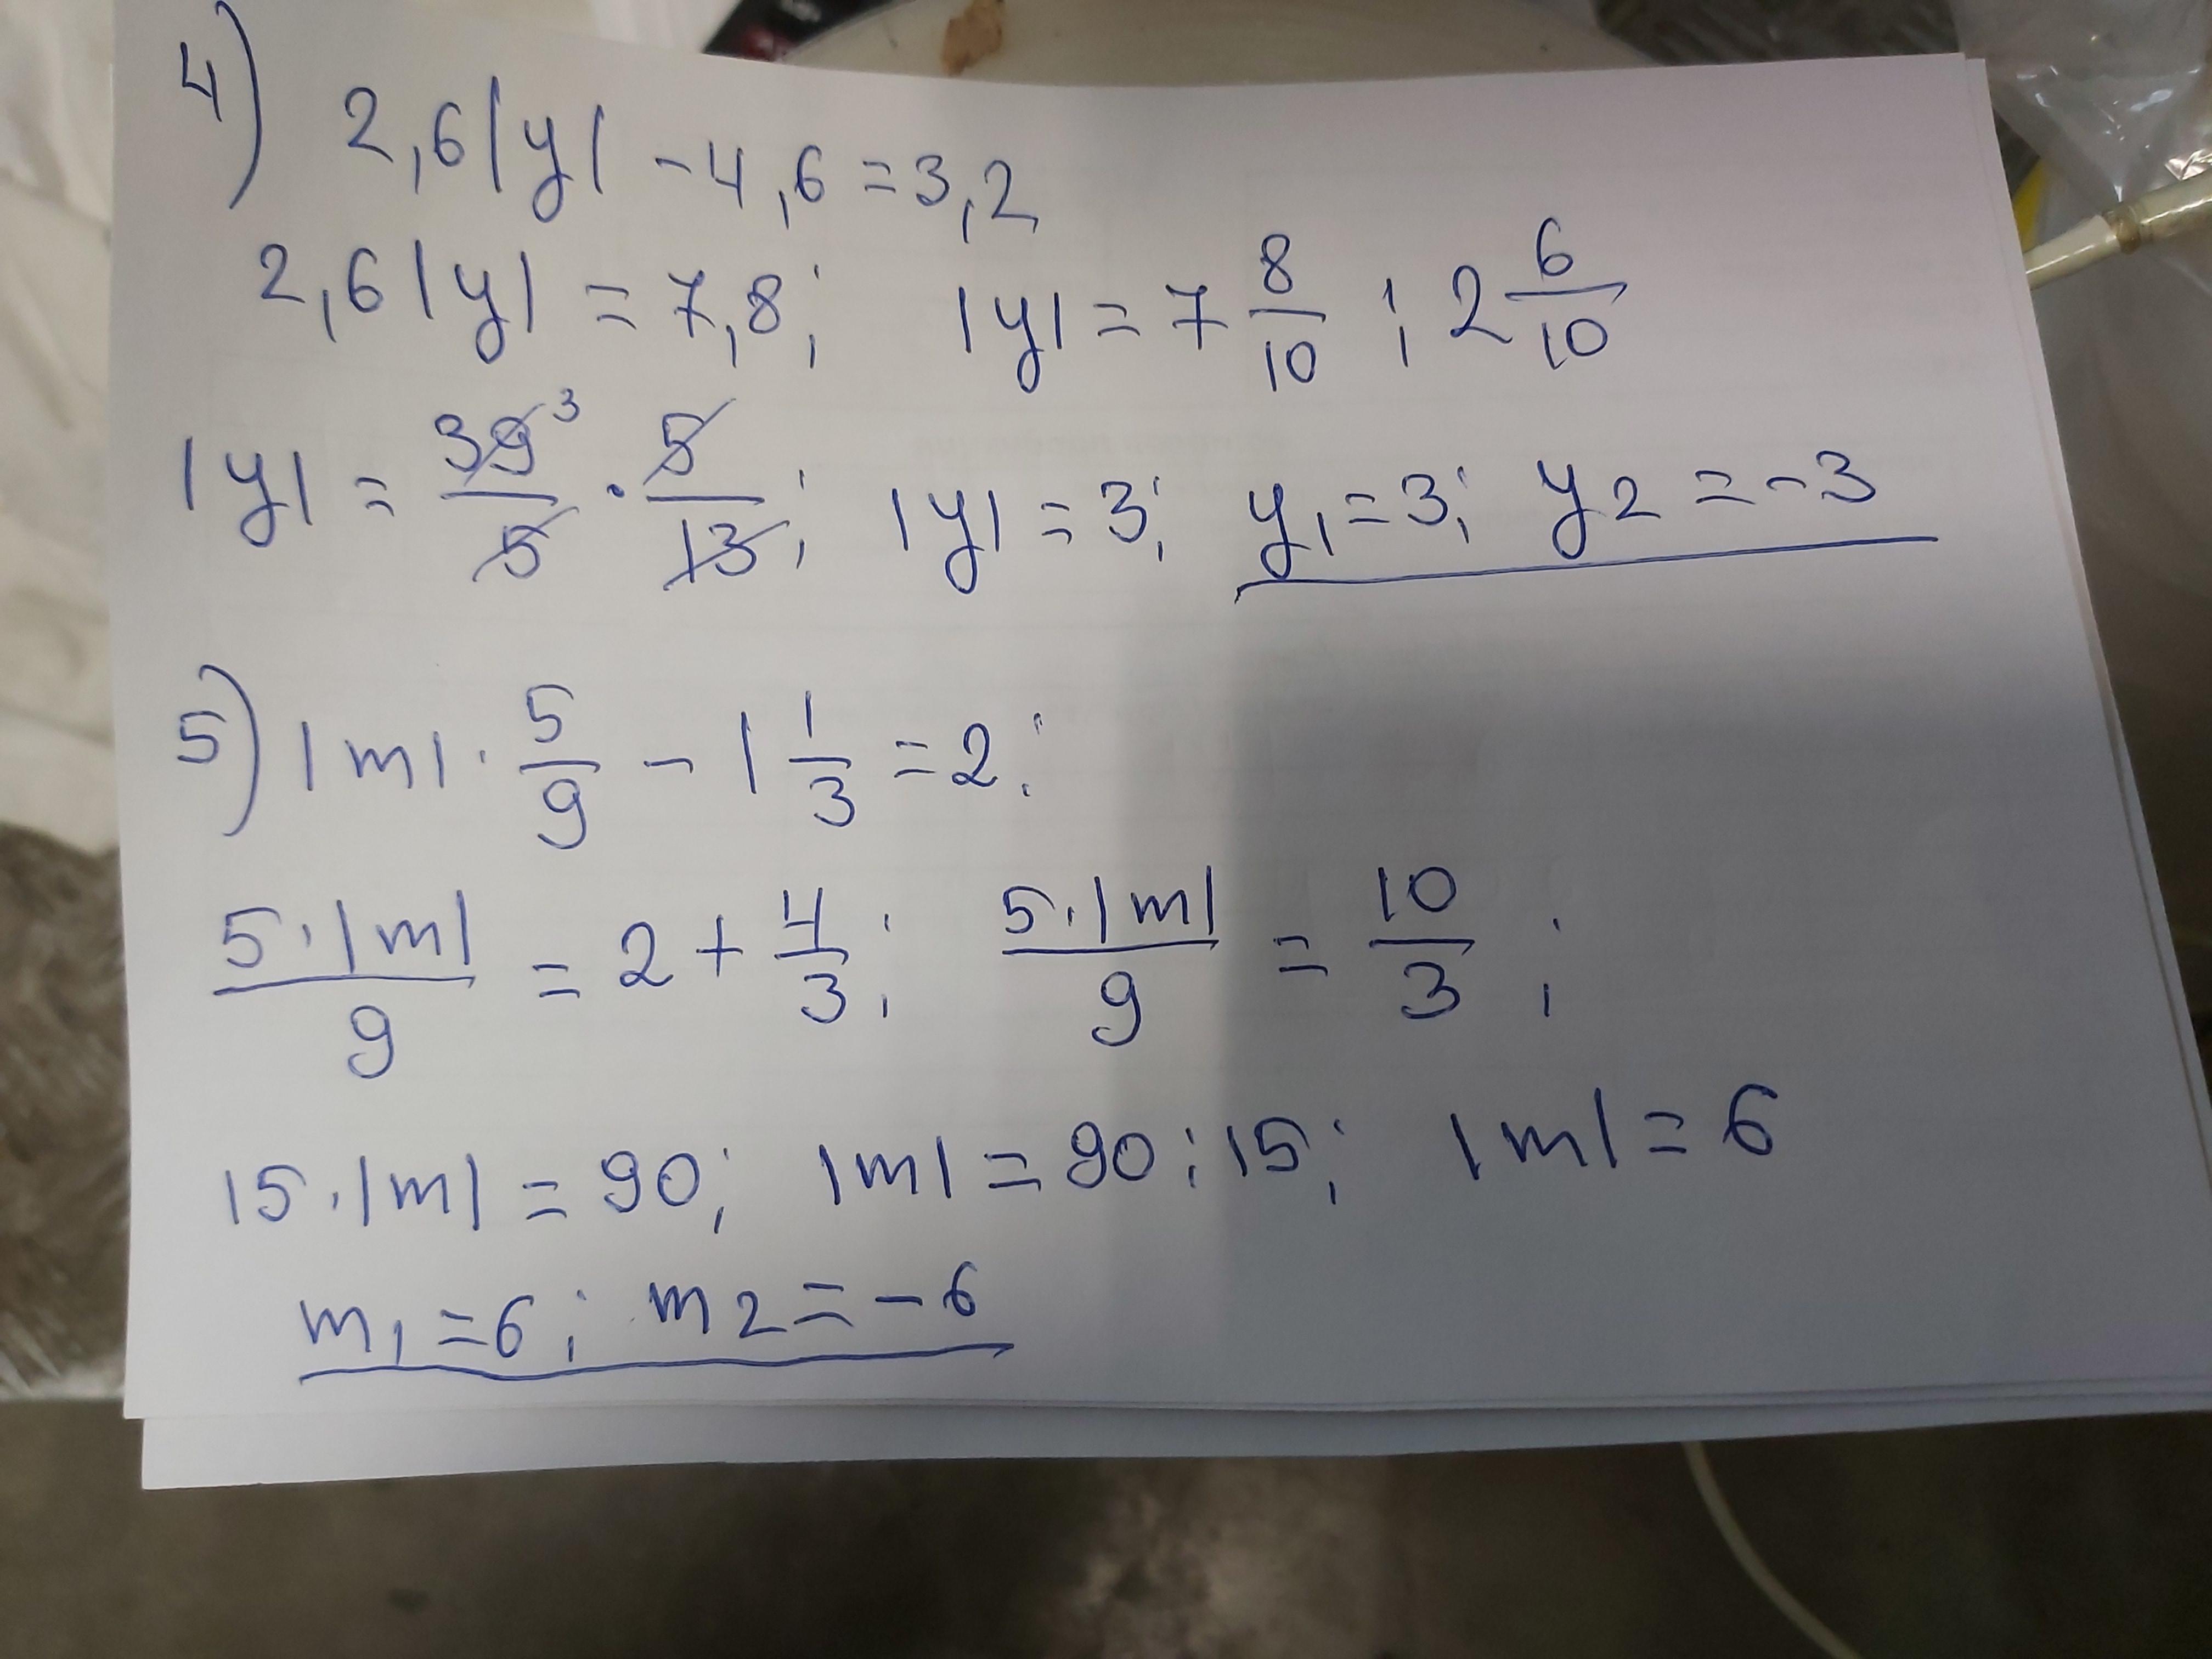 4) 2,6|y| - 4,6 = 3,2
2,6|y| = 7,8; |y| = 7 8/10 : 2 6/10
|y| = 39³/5 · 5/13; |y| = 3; y₁ = 3; y₂ = -3
5) |m| · 5/9 - 1 1/3 = 2;
5·|m|/9 = 2 + 4/3; 5·|m|/9 = 10/3;
15·|m| = 90; |m| = 90 : 15; |m| = 6
m₁ = 6; m₂ = -6